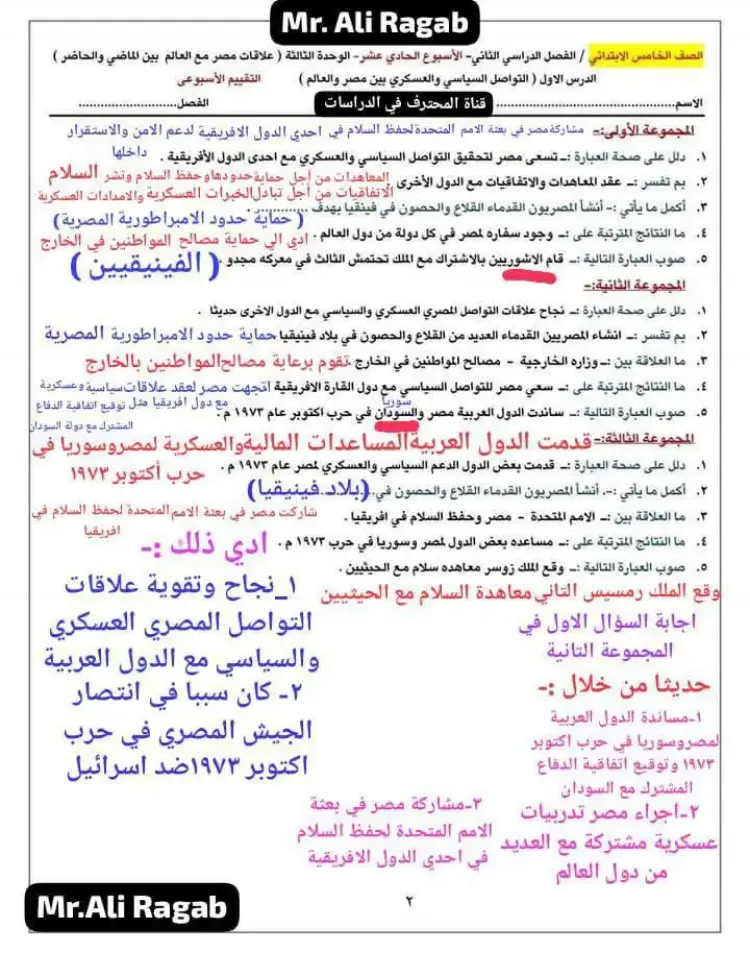 Mr. Ali Ragab
الصف الخامس الابتدائي / الفصل الدراسي الثاني- الأسبوع الحادي عشر- الوحدة الثالثة ( علاقات مصر مع العالم بين الماضي والحاضر )
الدرس الاول ( التواصل السياسي والعسكري بين مصر والعالم ) التقييم الأسبوعى
الاسم............ قناة المحترف في الدراسات الفصل............
المجموعة الأولى:- مشاركة مصر في بعثة الامم المتحدة لحفظ السلام في احدي الدول الافريقية لدعم الامن والاستقرار
داخلها
١. دلل على صحة العبارة :- تسعى مصر لتحقيق التواصل السياسي والعسكري مع احدى الدول الأفريقية .
المعاهدات من أجل حماية حدودها وحفظ السلام ونشر السلام
٢. بم تفسر :- عقد المعاهدات والاتفاقيات مع الدول الأخرى
الاتفاقيات من أجل تبادل الخبرات العسكرية والامدادات العسكرية
٣. أكمل ما يأتي :- أنشأ المصريون القدماء القلاع والحصون في فينقيا بهدف ............
( حماية حدود الامبراطورية المصرية )
٤. ما النتائج المترتبة على :- وجود سفاره لمصر في كل دولة من دول العالم .
ادي الي حماية مصالح المواطنين في الخارج
٥. صوب العبارة التالية :- قام الاشوريين بالاشتراك مع الملك تحتمش الثالث في معركه مجدو .
( الفينيقيين )
المجموعة الثانية:-
١. دلل على صحة العبارة :- نجاح علاقات التواصل المصري العسكري والسياسي مع الدول الاخرى حديثا .
٢. بم تفسر :- انشاء المصريين القدماء العديد من القلاع والحصون في بلاد فينيقيا حماية حدود الامبراطورية المصرية
٣. ما العلاقة بين :- وزاره الخارجية - مصالح المواطنين في الخارج . تقوم برعاية مصالح المواطنين بالخارج
٤. ما النتائج المترتبة على :- سعي مصر للتواصل السياسي مع دول القارة الافريقية اتجهت مصر لعقد علاقات سياسية وعسكرية
مع دول افريقيا مثل توقيع اتفاقية الدفاع
المشترك مع دولة السودان
سوريا
٥. صوب العبارة التالية :- ساندت الدول العربية مصر والسودان في حرب اكتوبر عام ١٩٧٣ م .
المجموعة الثالثة:- قدمت الدول العربية المساعدات المالية والعسكرية لمصر وسوريا في
حرب أكتوبر ١٩٧٣
١. دلل على صحة العبارة :- قدمت بعض الدول الدعم السياسي والعسكري لمصر عام ١٩٧٣ م .
٢. أكمل ما يأتي :-. أنشأ المصريون القدماء القلاع والحصون في.. (بلاد فينيقيا)
٣. ما العلاقة بين :- الامم المتحدة - مصر وحفظ السلام في افريقيا .
شاركت مصر في بعثة الامم المتحدة لحفظ السلام في
افريقيا
٤. ما النتائج المترتبة على :- مساعده بعض الدول لمصر وسوريا في حرب ١٩٧٣ م .
٥. صوب العبارة التالية :- وقع الملك زوسر معاهده سلام مع الحيثيين .
وقع الملك رمسيس التاني معاهدة السلام مع الحيثيين
ادي ذلك :-
١_نجاح وتقوية علاقات
التواصل المصري العسكري
والسياسي مع الدول العربية
٢- كان سببا في انتصار
الجيش المصري في حرب
اكتوبر ١٩٧٣ضد اسرائيل
اجابة السؤال الاول في
المجموعة التانية
حديثا من خلال :-
١-مساندة الدول العربية
لمصروسوريا في حرب اكتوبر
١٩٧٣ وتوقيع اتفاقية الدفاع
المشترك مع السودان
٢-اجراء مصر تدريبات
عسكرية مشتركة مع العديد
من دول العالم
٣-مشاركة مصر في بعثة
الامم المتحدة لحفظ السلام
في احدي الدول الافريقية
Mr.Ali Ragab
٢